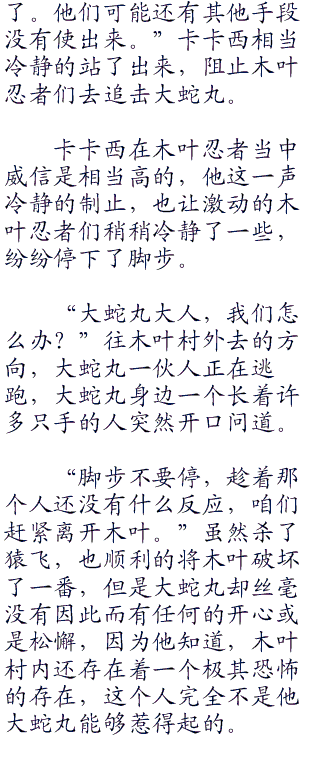 了。他们可能还有其他手段
没有使出来。”卡卡西相当
冷静的站了出来，阻止木叶
忍者们去追击大蛇丸。
卡卡西在木叶忍者当中
威信是相当高的，他这一声
冷静的制止，也让激动的木
叶忍者们稍稍冷静了一些，
纷纷停下了脚步。
“大蛇丸大人，我们怎
么办？”往木叶村外去的方
向，大蛇丸一伙人正在逃
跑，大蛇丸身边一个长着许
多只手的人突然开口问道。
“脚步不要停，趁着那
个人还没有什么反应，咱们
赶紧离开木叶。”虽然杀了
猿飞，也顺利的将木叶破坏
了一番，但是大蛇丸却丝毫
没有因此而有任何的开心或
是松懈，因为他知道，木叶
村内还存在着一个极其恐怖
的存在，这个人完全不是他
大蛇丸能够惹得起的。